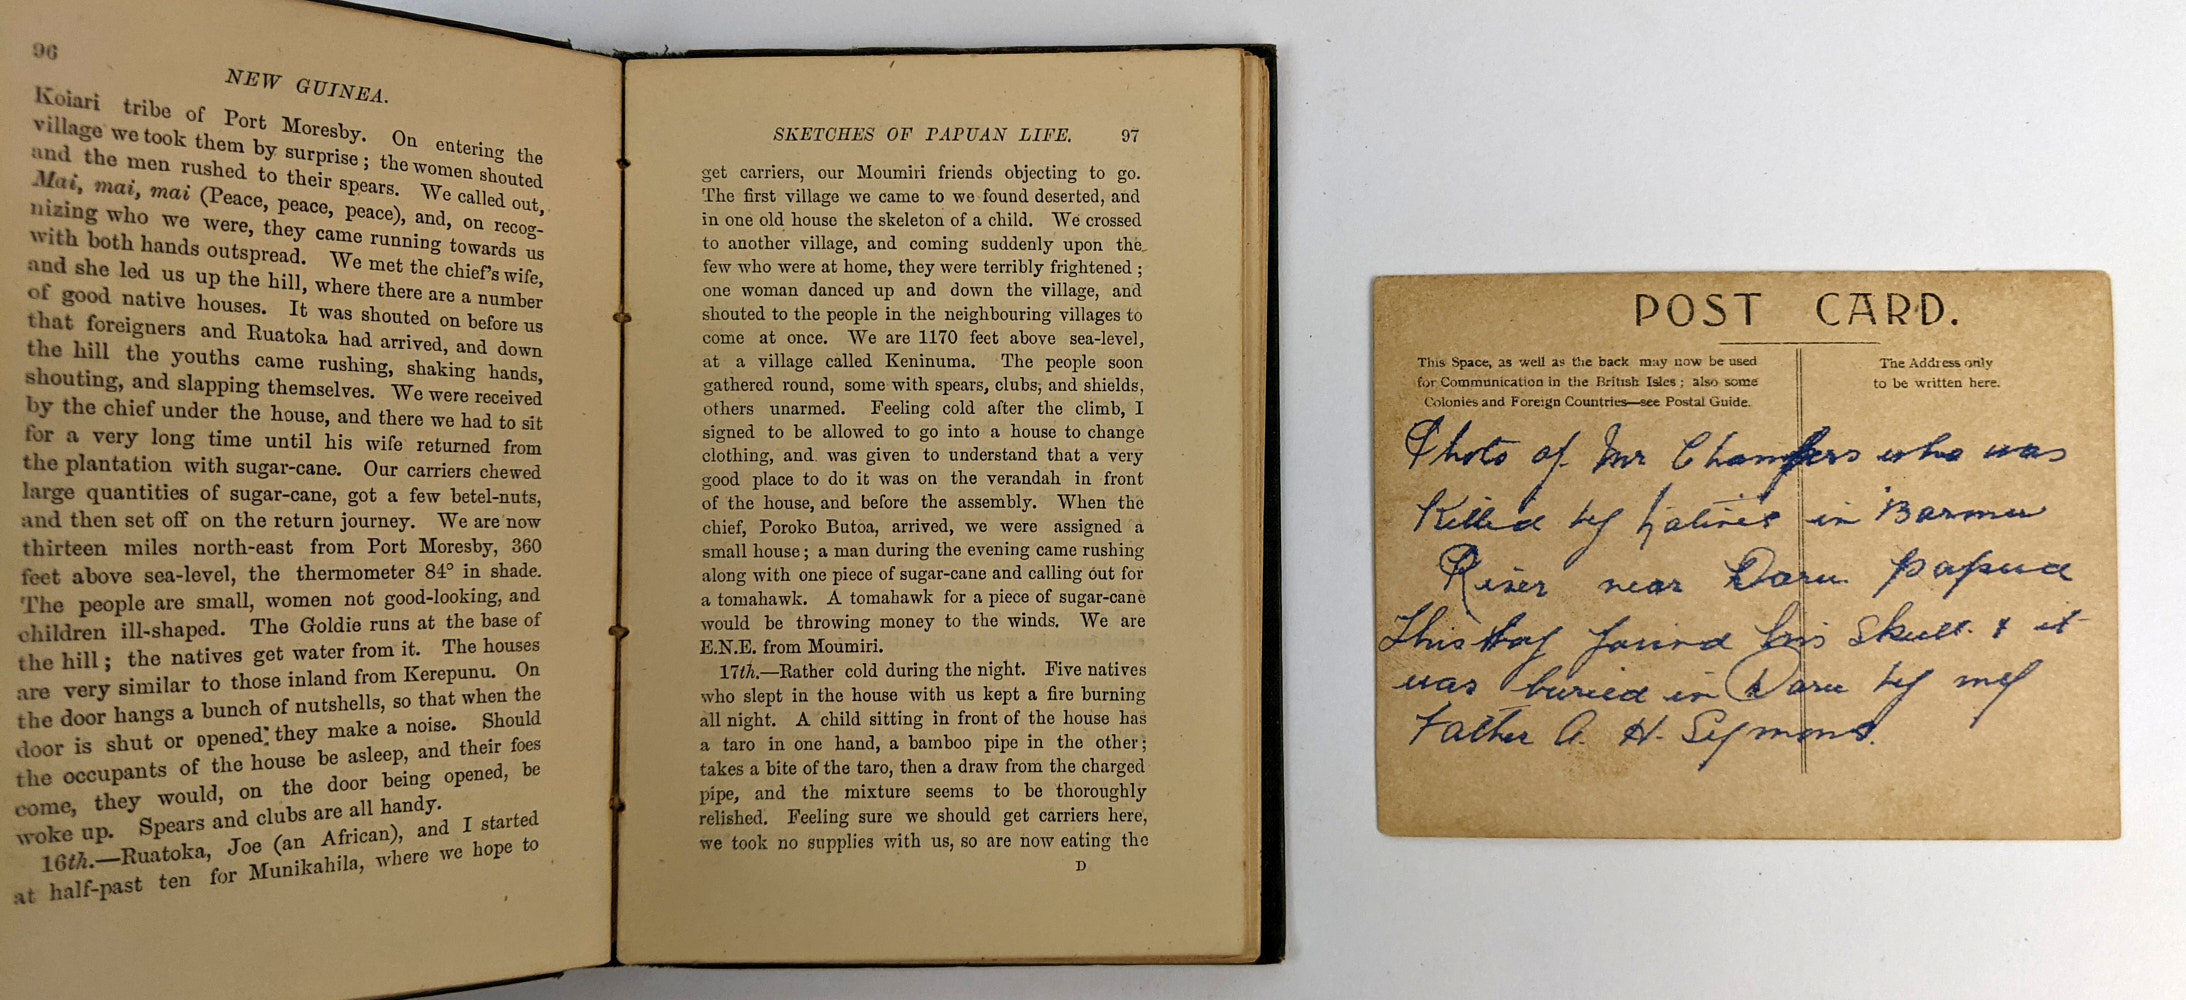 96
NEW GUINEA.
Koiari tribe of Port Moresby. On entering the
village we took them by surprise; the women shouted
and the men rushed to their spears. We called out,
Mai, mai, mai (Peace, peace, peace), and, on recog-
nizing who we were, they came running towards us
with both hands outspread. We met the chief's wife,
and she led us up the hill, where there are a number
of good native houses. It was shouted on before us
that foreigners and Ruatoka had arrived, and down
the hill the youths came rushing, shaking hands,
shouting, and slapping themselves. We were received
by the chief under the house, and there we had to sit
for a very long time until his wife returned from
the plantation with sugar-cane. Our carriers chewed
large quantities of sugar-cane, got a few betel-nuts,
and then set off on the return journey. We are now
thirteen miles north-east from Port Moresby, 360
feet above sea-level, the thermometer 84° in shade.
The people are small, women not good-looking, and
children ill-shaped. The Goldie runs at the base of
the hill; the natives get water from it. The houses
are very similar to those inland from Kerepunu. On
the door hangs a bunch of nutshells, so that when the
door is shut or opened they make a noise. Should
the occupants of the house be asleep, and their foes
come, they would, on the door being opened, be
woke up. Spears and clubs are all handy.
16th.—Ruatoka, Joe (an African), and I started
at half-past ten for Munikahila, where we hope to
SKETCHES OF PAPUAN LIFE. 97
get carriers, our Moumiri friends objecting to go.
The first village we came to we found deserted, and
in one old house the skeleton of a child. We crossed
to another village, and coming suddenly upon the
few who were at home, they were terribly frightened;
one woman danced up and down the village, and
shouted to the people in the neighbouring villages to
come at once. We are 1170 feet above sea-level,
at a village called Keninuma. The people soon
gathered round, some with spears, clubs, and shields,
others unarmed. Feeling cold after the climb, I
signed to be allowed to go into a house to change
clothing, and was given to understand that a very
good place to do it was on the verandah in front
of the house, and before the assembly. When the
chief, Poroko Butoa, arrived, we were assigned a
small house; a man during the evening came rushing
along with one piece of sugar-cane and calling out for
a tomahawk. A tomahawk for a piece of sugar-cane
would be throwing money to the winds. We are
E.N.E. from Moumiri.
17th.—Rather cold during the night. Five natives
who slept in the house with us kept a fire burning
all night. A child sitting in front of the house has
a taro in one hand, a bamboo pipe in the other;
takes a bite of the taro, then a draw from the charged
pipe, and the mixture seems to be thoroughly
relished. Feeling sure we should get carriers here,
we took no supplies with us, so are now eating the
D
POST CARD.
This Space, as well as the back may now be used
for Communication in the British Isles; also some
Colonies and Foreign Countries—see Postal Guide.
The Address only
to be written here.
Photo of Mr Chamfers who was
Killed by Natives in Barmu
River near Daru Papua
This boy found his skull & it
was buried in Daru by my
Father A. H. Symons.